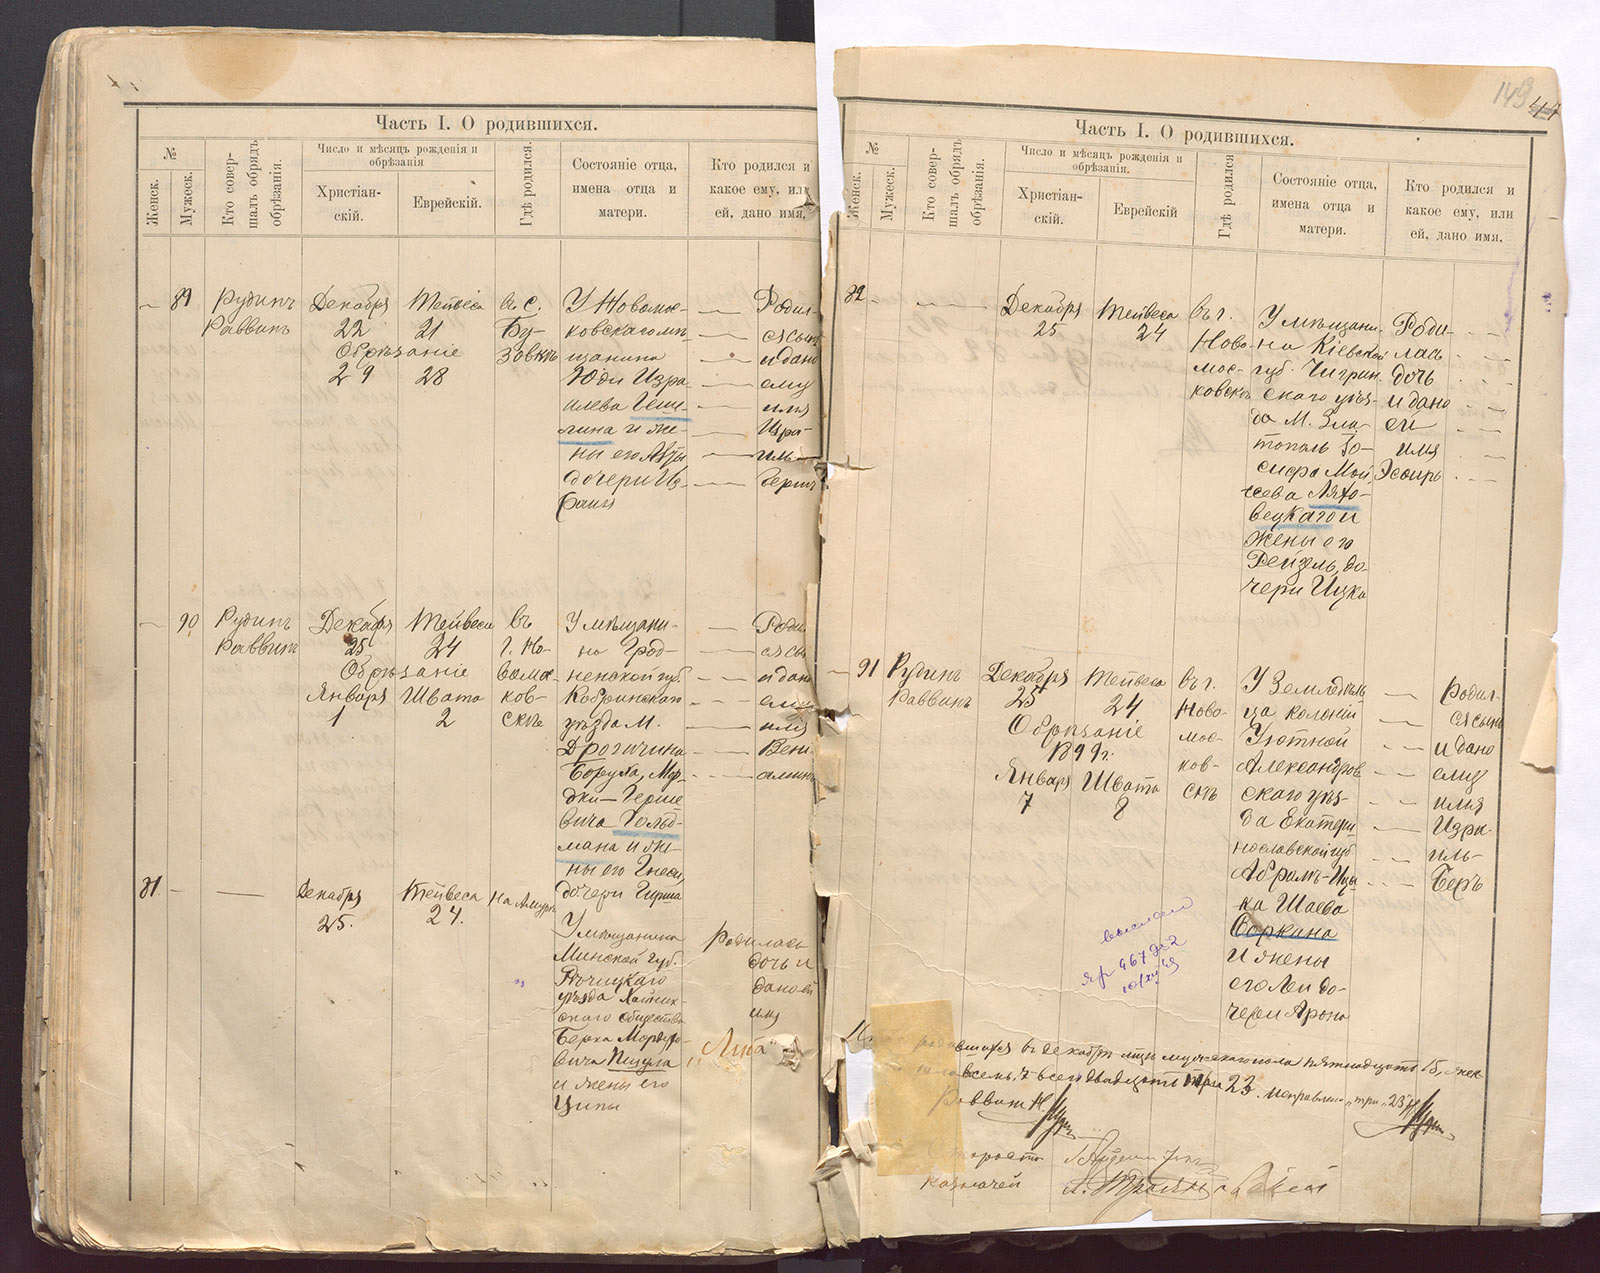 Часть I. О родившихся.
№
Женск.
Мужеск.
Кто совер-
шалъ обрядъ
обрѣзанія.
Число и мѣсяцъ рожденія и
обрѣзанія
Христіан-
скій.
Еврейскій.
Гдѣ родился.
Состояніе отца,
имена отца и
матери.
Кто родился и
какое ему, или
ей, дано имя.
89
Рудинъ
Раввинъ
Декабря
22
Тейвеса
21
Обрѣзаніе
29
28
въ с.
Бу-
зовкѣ
У Новомос-
ковскаго мѣ-
щанина
Юди Изра-
илева Геши-
лина и же-
ны его
дочери Из-
Родил-
ся сынъ
и дано
ему
имя
Изра-
иль
Беръ
90
Рудинъ
Раввинъ
Декабря
25
Тейвеса
24
Обрѣзаніе
Января
1
Швата
2
въ
г. Но-
вомос-
ков-
скѣ
У мѣщани-
на Грод-
ненской губ.
Кобринскаго
уѣзда М.
Дрогичина
Боруха, Мор-
дки-Герше
вича Гольд-
мана и же-
ны его Гнеси,
дочери Гирша
Роди
ся сы
и дано
ему
имя
Вені-
аминъ
31.
Декабря
25.
Тейвеса
24.
На Амурѣ
У мѣщанина
Минской губ.
Рѣчицкаго
уѣзда Хойник-
скаго общества
Берка Мордухо-
вича Пищула
и жены его
Ципы
Родилась
дочь и
дано ей
имя
"Люба"
149
44
Часть I. О родившихся.
№
Женск.
Мужеск.
Кто совер-
шалъ обрядъ
обрѣзанія.
Число и мѣсяцъ рожденія и
обрѣзанія.
Христіан-
скій.
Еврейскій.
Гдѣ родился
Состояніе отца,
имена отца и
матери.
Кто родился и
какое ему, или
ей, дано имя.
32
Декабря
25
Тейвеса
24
въ г.
Ново-
мос-
ковскѣ
У мѣщани-
на Кіевской
губ. Чигрин
скаго уѣз-
да М. Зла-
тополь Іо-
сифа Мой
сеева Ляхо-
вецкаго и
жены его
Рейзель, до-
чери Ицка
Роди-
лась
дочь
и дано
ей
имя
Эсѳирь
91
Рудинъ
Раввинъ
Декабря
25
Тейвеса
24
Обрѣзаніе
1899 г.
Января
7
Швата
8
въ г.
Ново-
мос-
ков-
скѣ
У Земледѣль
ца колоніи
Уютной
Александров
скаго уѣз-
да Екатери
нославской губ
Абрамъ-Ицы
ка Шаева
Соркина
и жены
его Леи до-
чери Арона
Родил-
ся сынъ
и дано
ему
имя
Изра-
иль-
Беръ
родившихся въ декабрѣ м-цѣ мужескаго пола пятнадцать 15, жен
восемь, всего двадцать три 23. исправлено "три" "23"
Раввинъ Н.
Староста
Казначей